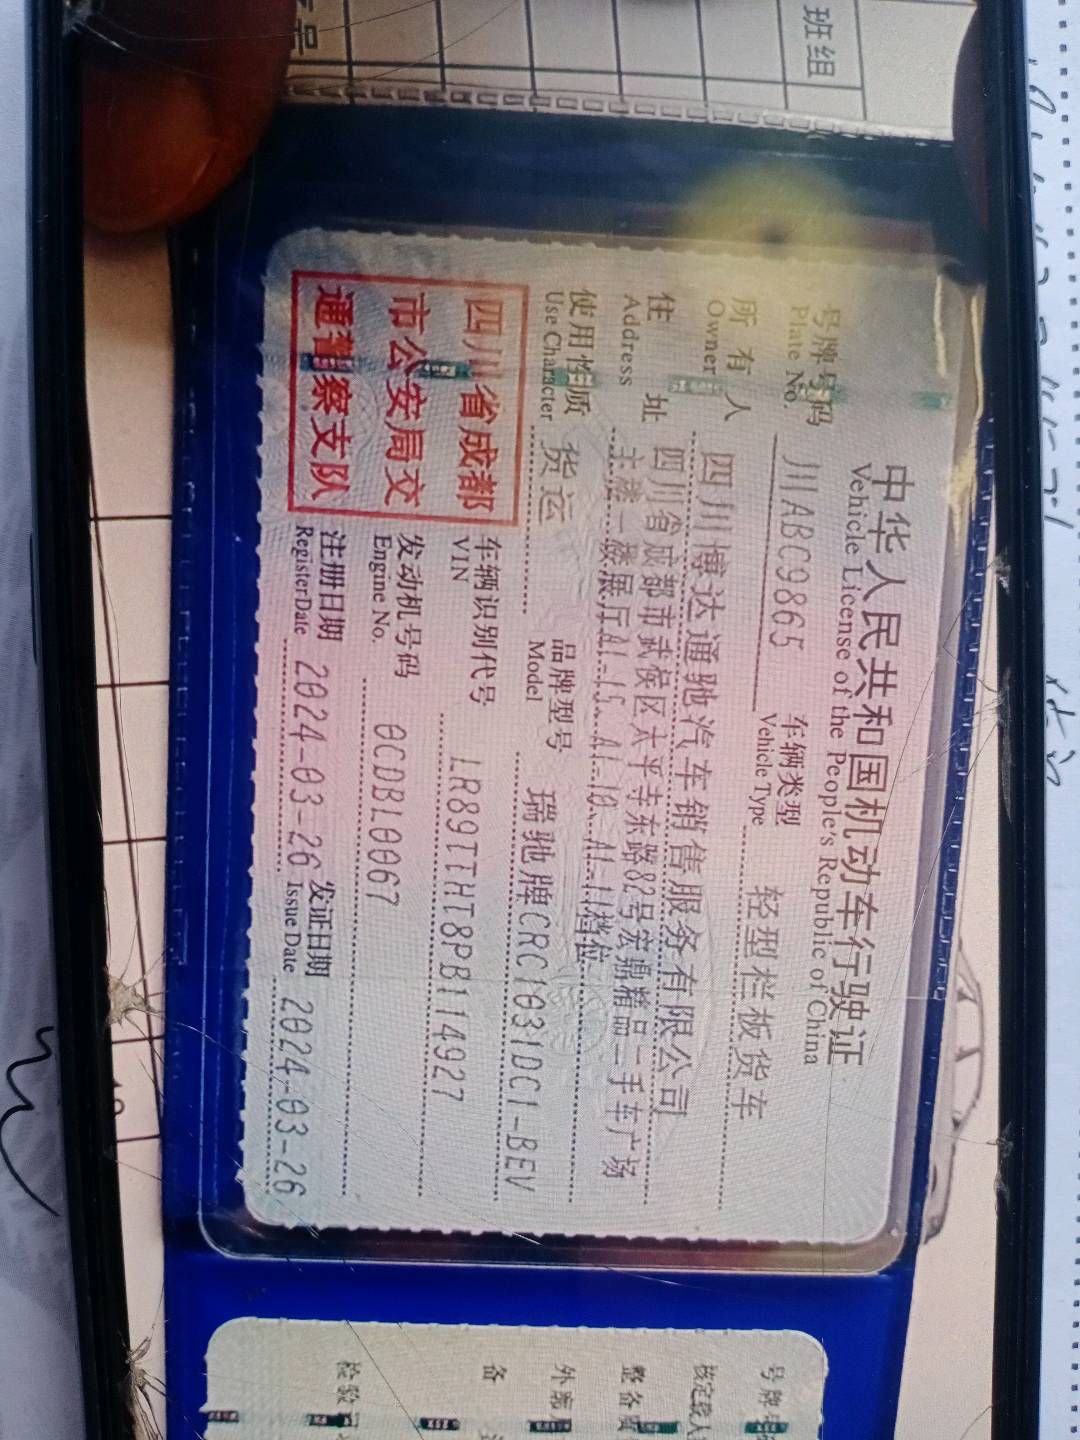 班组
号
中华人民共和国机动车行驶证
Vehicle License of the People's Republic of China
号牌号码
Plate No.
川ABC9865
车辆类型
Vehicle Type
轻型栏板货车
所有人
Owner
四川博达通驰汽车销售服务有限公司
住址
Address
四川省成都市武侯区太平寺东路82号宏鼎精品二手车广场
主楼一楼展厅A1-15、A1-10、A1-11档位
使用性质
Use Character
货运
品牌型号
Model
瑞驰牌CRC1031DC1-BEV
四川省成都
市公安局交
通警察支队
车辆识别代号
VIN
LR89TTHT8PB114927
发动机号码
Engine No.
0CDBL0067
注册日期
Register Date
2024-03-26
发证日期
Issue Date
2024-03-26
号牌
核定载人
整备质
外廓
备
检验